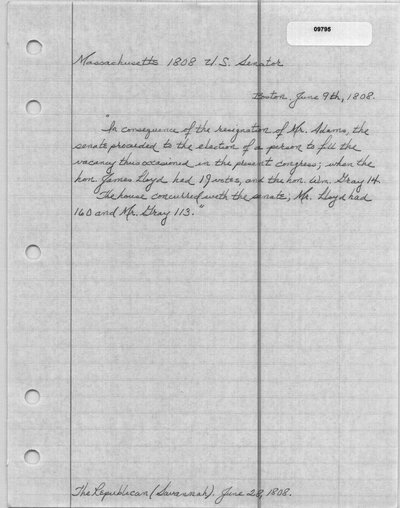 09795
Massachusetts 1808 U.S. Senator
Boston, June 9th, 1808.
"In consequence of the resignation of Mr. Adams, the
senate proceeded to the election of a person to fill the
vacancy thus occasioned in the present congress; when the
hon. James Lloyd had 19 votes, and the hon. Wm. Gray 14.
The house concurred with the senate; Mr. Lloyd had
160 and Mr. Gray 113."
The Republican (Savannah). June 28, 1808.